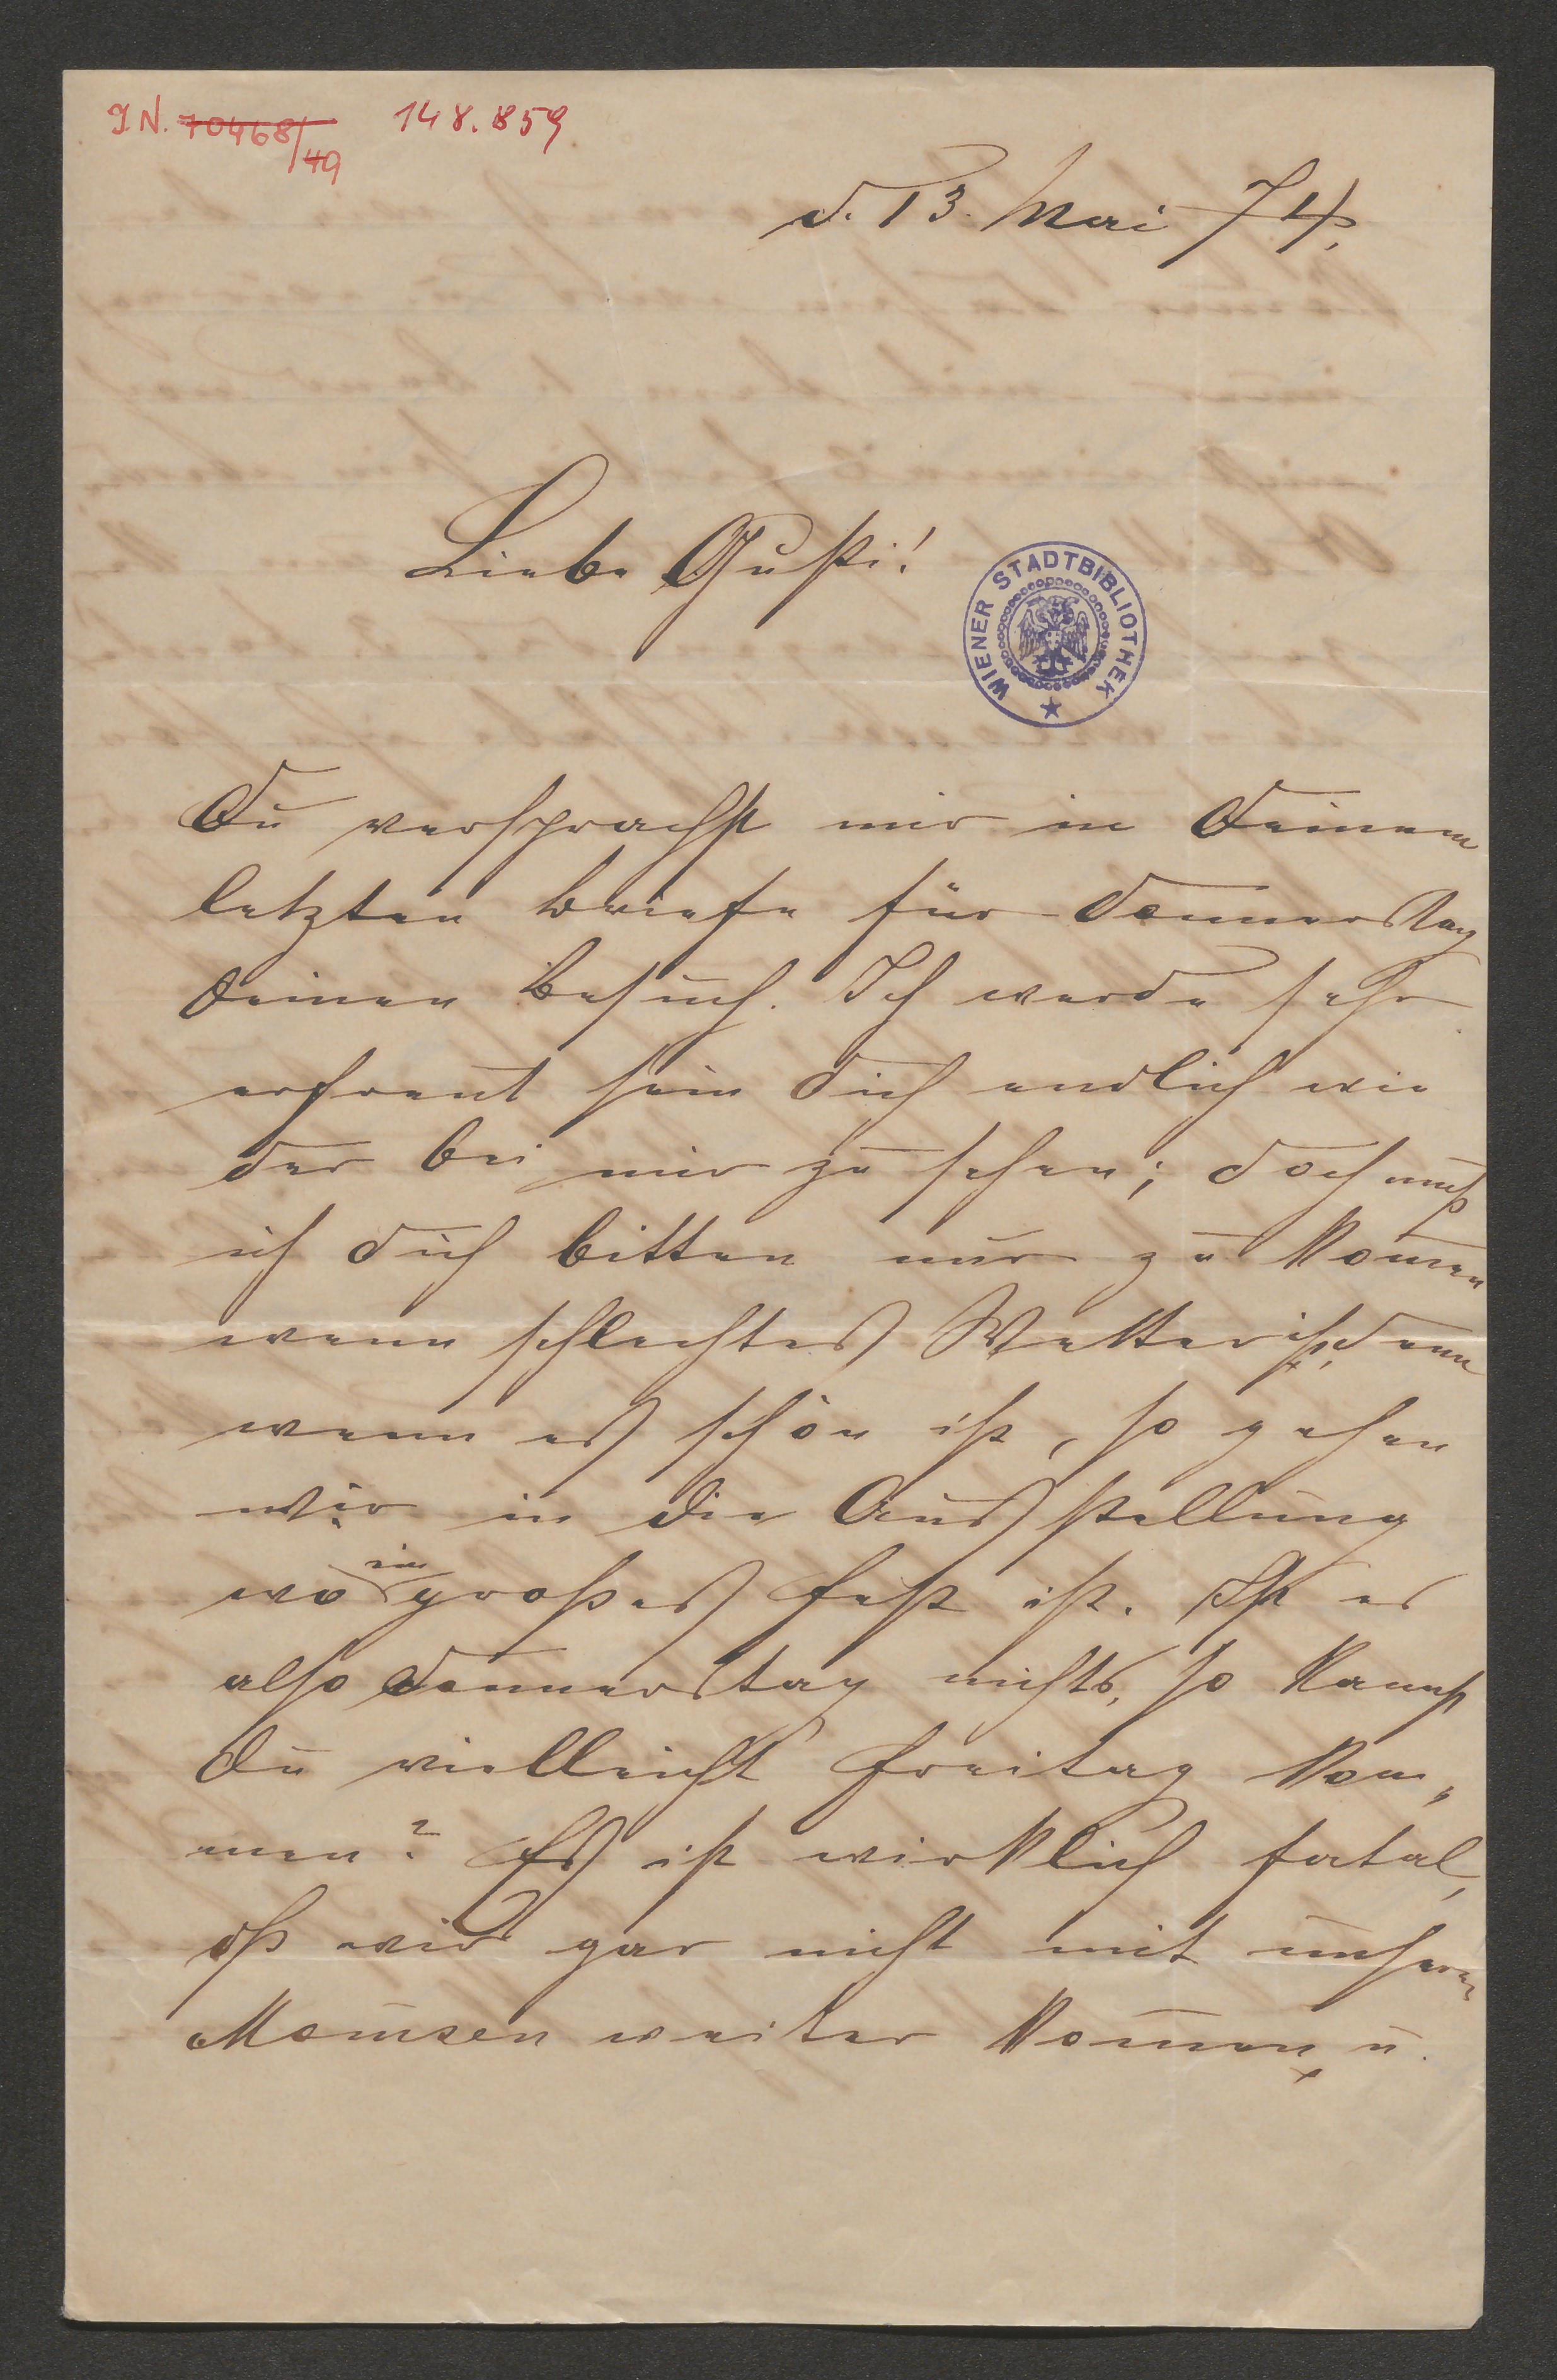 IN. 70468/49 148.859
d. 13. Mai 74.
Liebe Gusti!
WIENER STADTBIBLIOTHEK
Du versprachst mir in Deinem
letzten Briefe für Donnerstag
Deinen Besuch. Ich werde sehr
erfreut sein Dich endlich wie
der bei mir zu sehen; doch muß
ich Dich bitten nur zu kom̄en
wenn schlechtes Wetter ist, denn
wenn es schön ist, so gehen
wir in die Ausstellung
wo ein großes Fest ist. Ist es
also Donnerstag nichts, so kannst
Du vielleicht Freitag kom„
men? Es ist wirklich fatal,
daß wir gar nicht mit unserem
Mom̄sen weiter kom̄en, u.